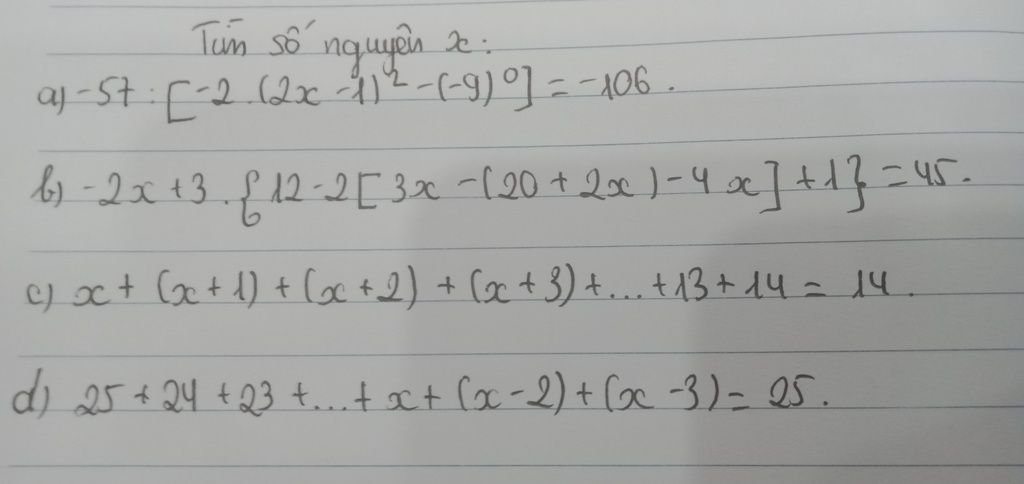 Tìm số nguyên x:
a) -57 : [-2 . (2x - 1)² - (-9)⁰] = -106 .
b) -2x + 3 . { 12 - 2[ 3x - (20 + 2x) - 4x] + 1} = 45.
c) x + (x + 1) + (x + 2) + (x + 3) + ... + 13 + 14 = 14 .
d) 25 + 24 + 23 + ... + x + (x - 2) + (x - 3) = 25 .